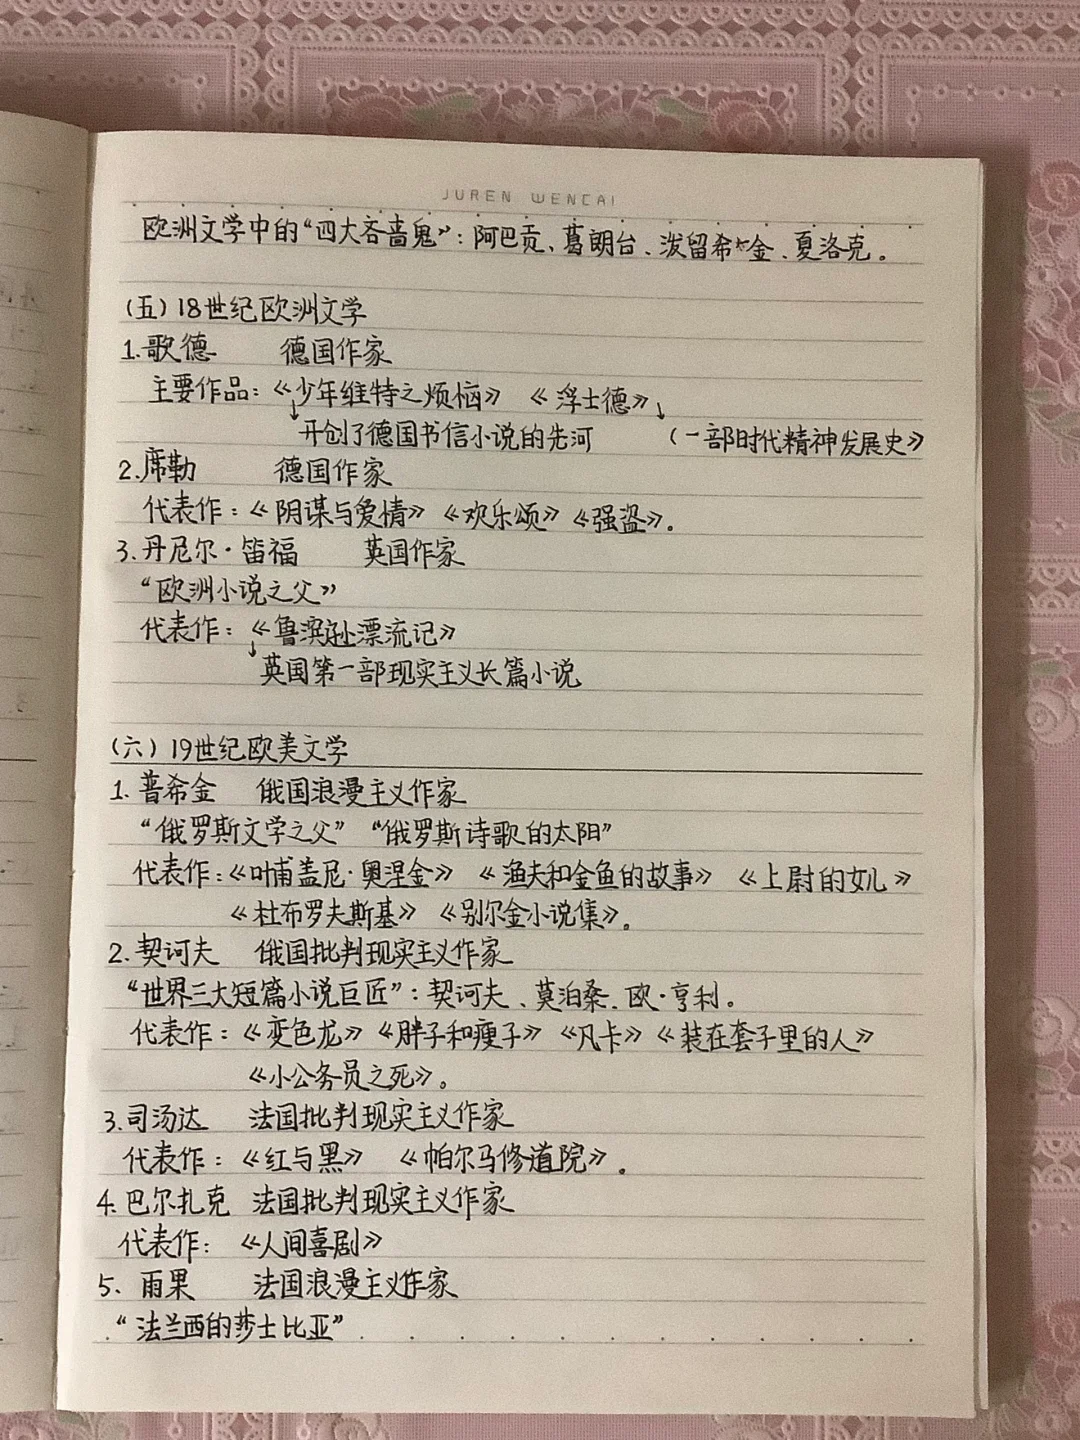 JUREN WENCAI
欧洲文学中的“四大吝啬鬼”：阿巴贡、葛朗台、泼留希金、夏洛克。
(五) 18世纪欧洲文学
1.歌德 德国作家
主要作品：《少年维特之烦恼》 《浮士德》
↓开创了德国书信小说的先河 (一部时代精神发展史》
2.席勒 德国作家
代表作：《阴谋与爱情》《欢乐颂》《强盗》.
3.丹尼尔·笛福 英国作家
“欧洲小说之父”
代表作：《鲁滨逊漂流记》
↓英国第一部现实主义长篇小说
(六) 19世纪欧美文学
1.普希金 俄国浪漫主义作家
“俄罗斯文学之父” “俄罗斯诗歌的太阳”
代表作：《叶甫盖尼·奥涅金》 《渔夫和金鱼的故事》 《上尉的女儿》
《杜布罗夫斯基》 《别尔金小说集》。
2.契诃夫 俄国批判现实主义作家
“世界三大短篇小说巨匠”：契诃夫、莫泊桑、欧·亨利。
代表作：《变色龙》《胖子和瘦子》《凡卡》《装在套子里的人》
《小公务员之死》。
3.司汤达 法国批判现实主义作家
代表作：《红与黑》 《帕尔马修道院》。
4.巴尔扎克 法国批判现实主义作家
代表作：《人间喜剧》
5、雨果 法国浪漫主义作家
“法兰西的莎士比亚”